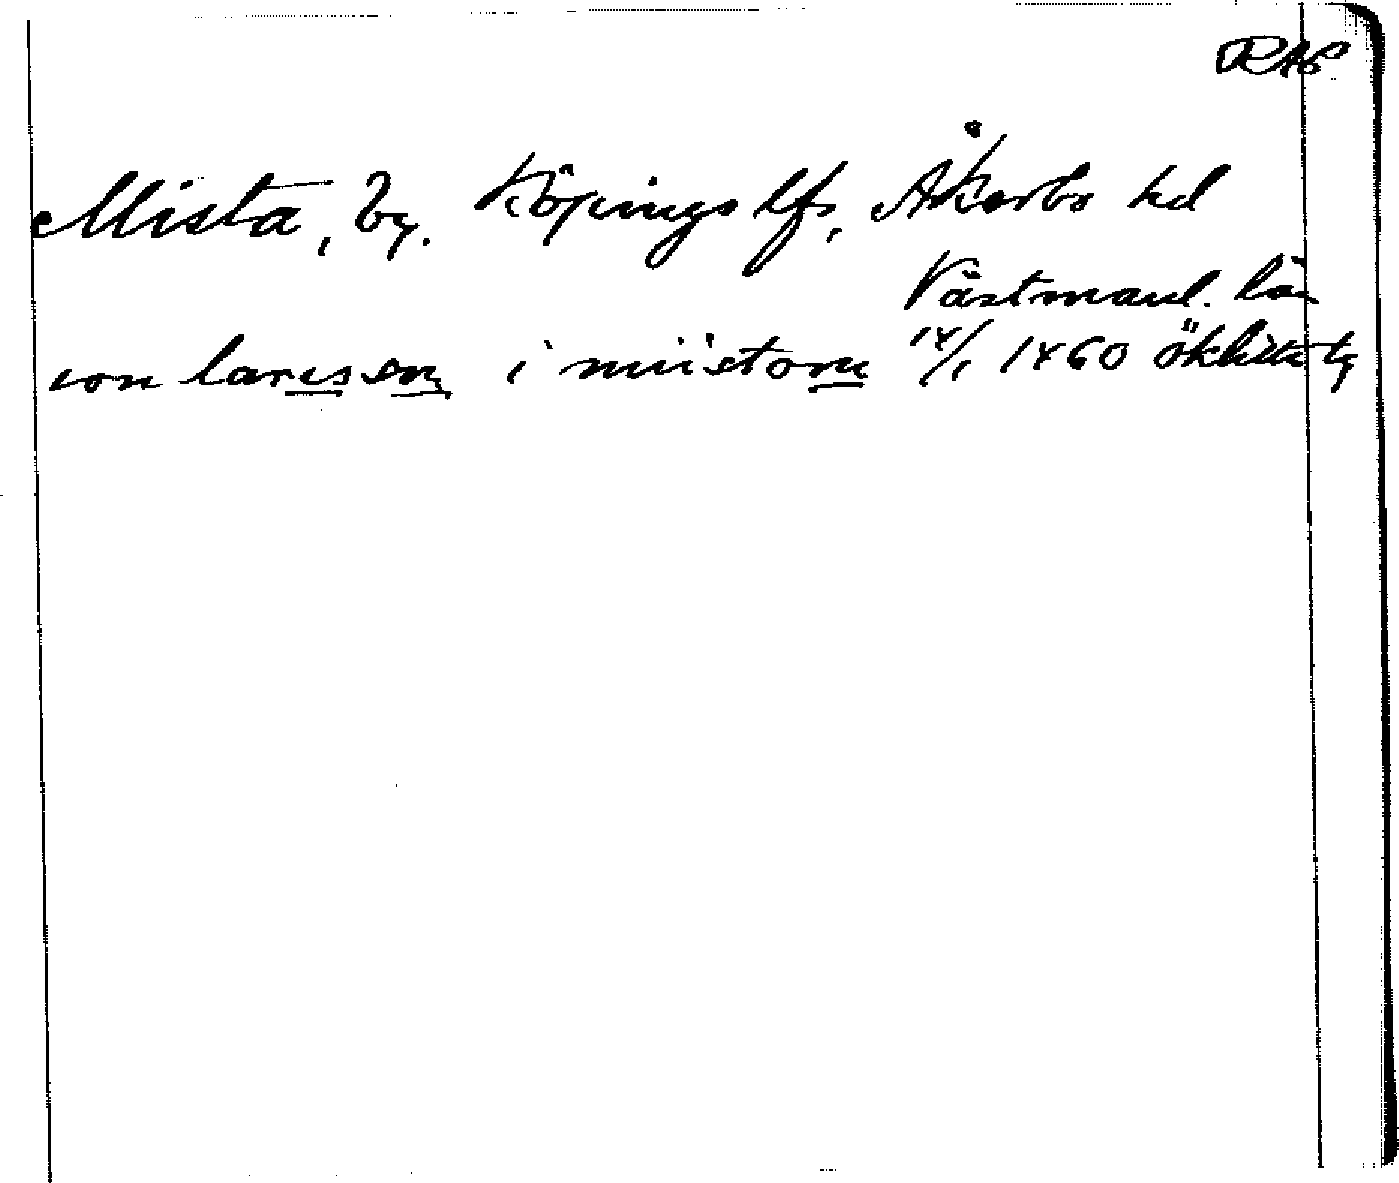 RAP
Mista, by. Köpings lfs, Åkerbo hd
Västmanl. län
ion larcsson i miistom 14/1 1460